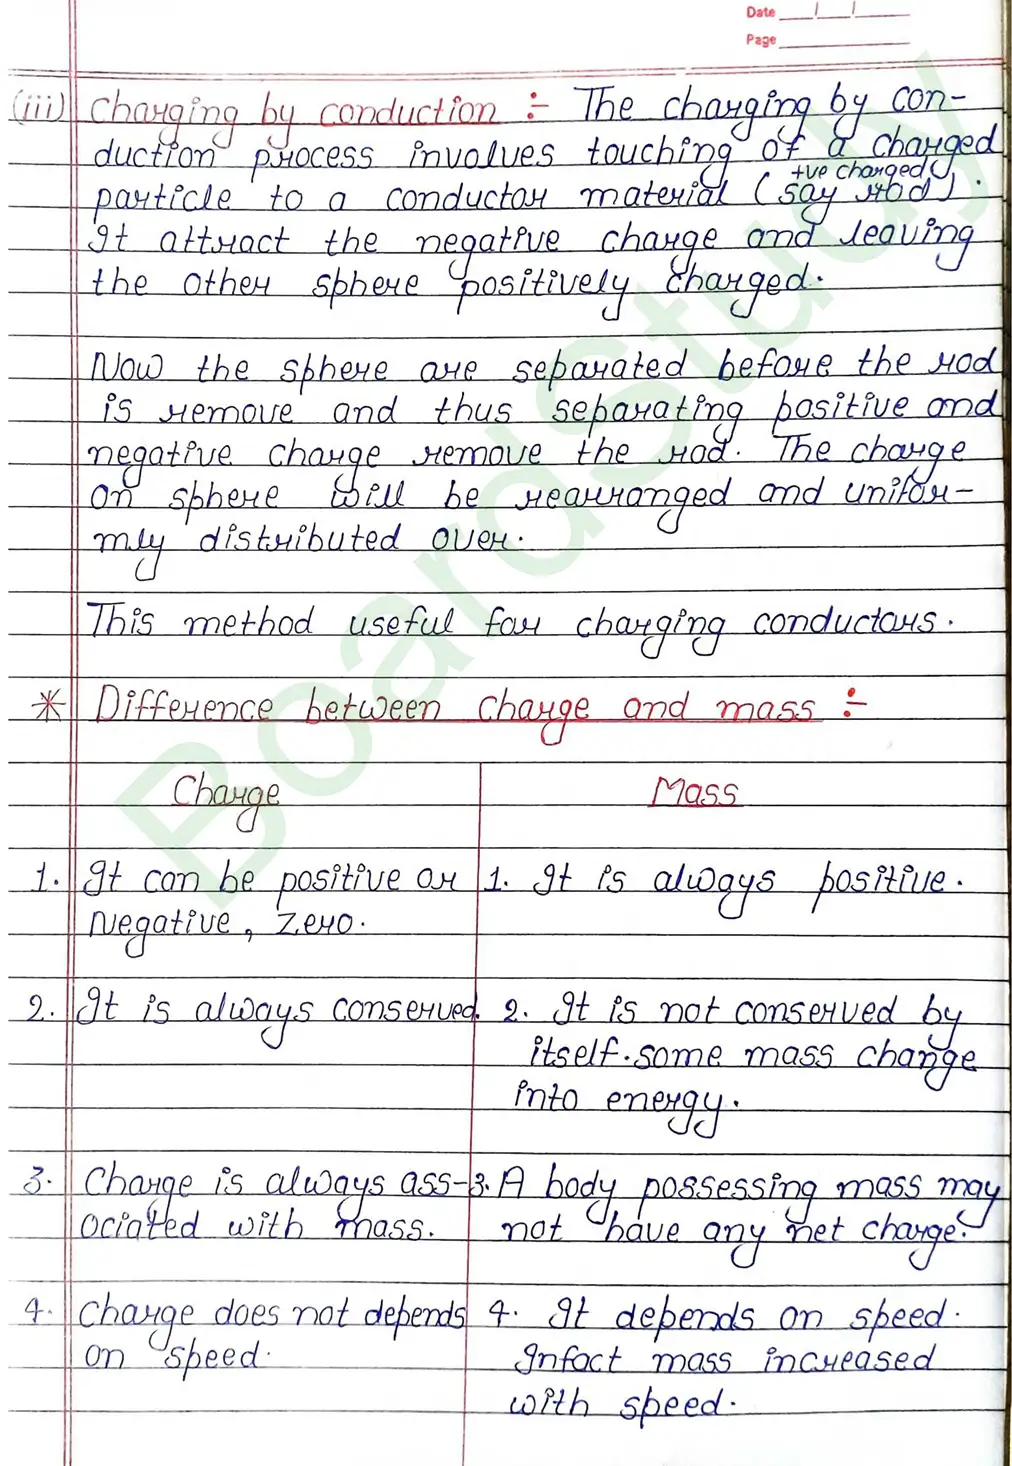 Date ___/___/___
Page ___
(iii) Charging by conduction :- The charging by con-
duction process involves touching of a charged
+ve charged
particle to a conductor material (say rod).
It attract the negative charge and leaving
the other sphere positively charged.
Now the sphere are separated before the rod
is remove and thus separating positive and
negative charge remove the rod. The charge
on sphere will be rearranged and unifor-
mly distributed over.
This method useful for charging conductors.
* Difference between charge and mass :-
Charge Mass
1. It can be positive or 1. It is always positive.
Negative, Zero.
2. It is always conserved. 2. It is not conserved by
itself. some mass change
into energy.
3. Charge is always ass- 3. A body possessing mass may
ociated with mass. not have any net charge.
4. Charge does not depends 4. It depends on speed.
on speed. Infact mass increased
with speed.
BoardStudy